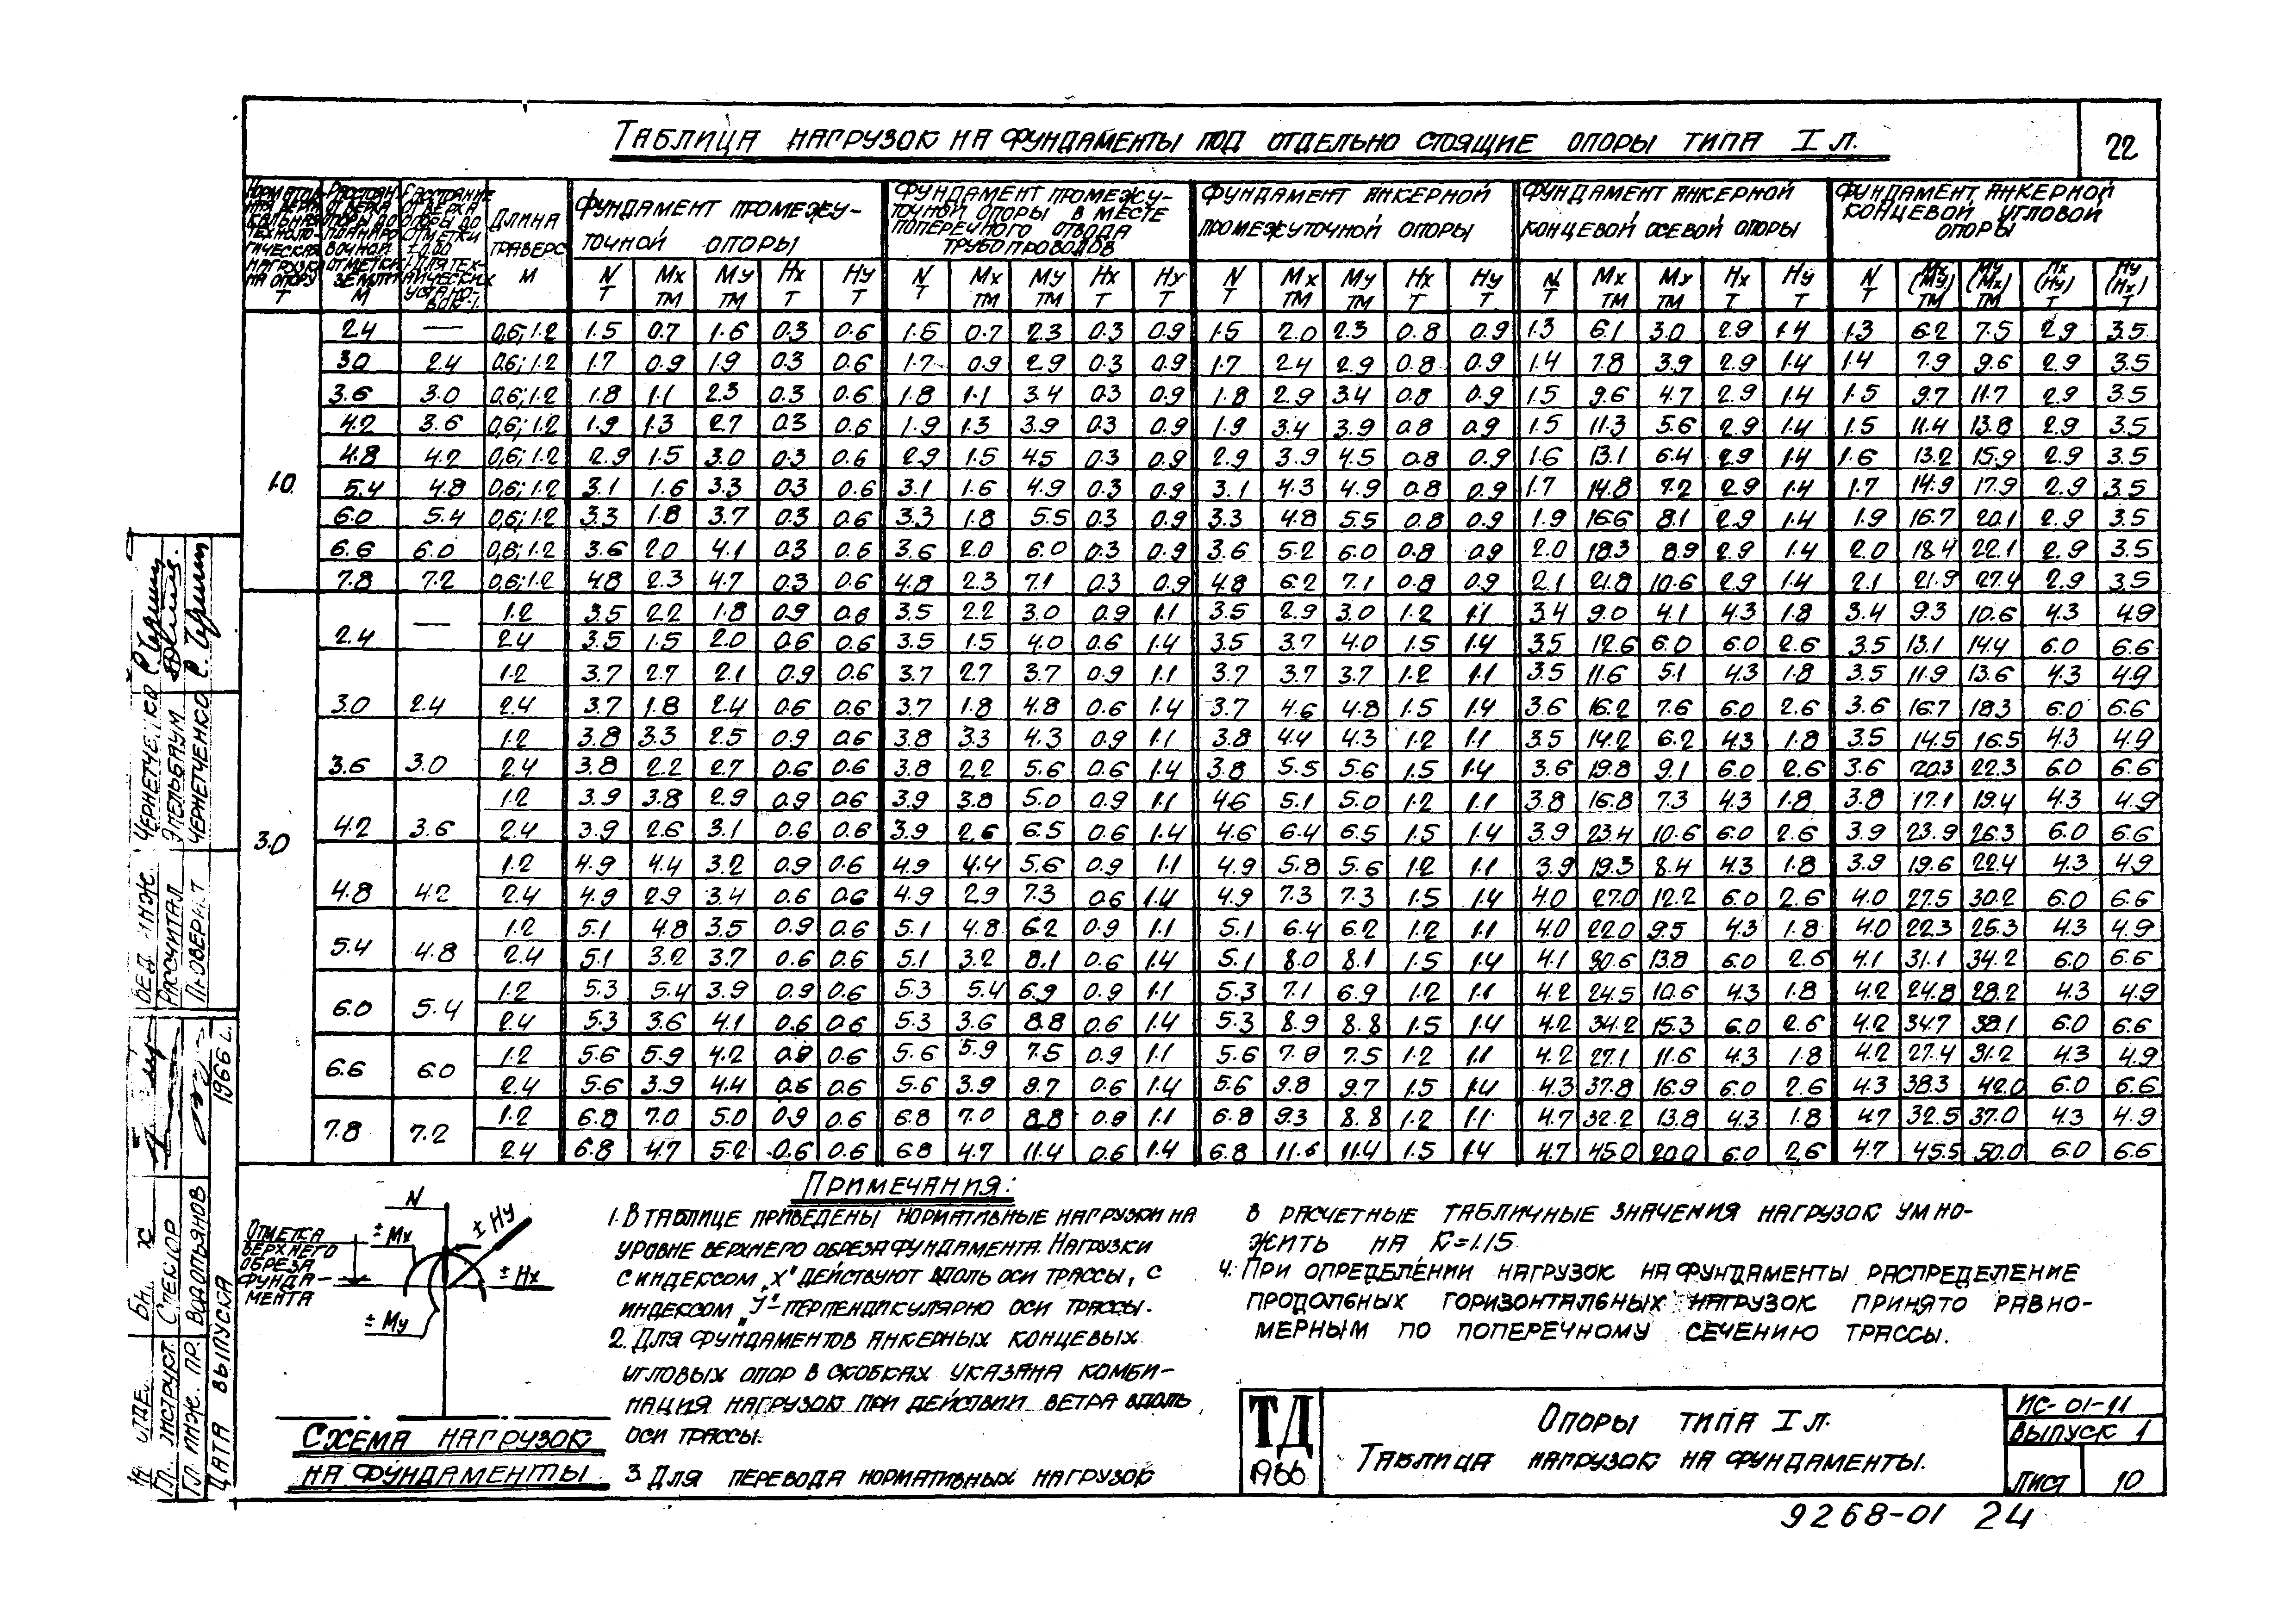 Таблица нагрузок на фундаменты под отдельно стоящие опоры типа I л.
22
Длина траверс м
Фундамент промежуточной опоры
Фундамент промежуточной опоры в месте поперечного отвода трубопроводов
Фундамент анкерной промежуточной опоры
Фундамент анкерной концевой осевой опоры
Фундамент анкерной концевой угловой опоры
N т Mx тм My тм Hx т Hy т N т Mx тм My тм Hx т Hy т N т Mx тм My тм Hx т Hy т N т Mx тм My тм Hx т Hy т N т Mx (My) тм My (Mx) тм Hx (Hy) т Hy (Hx) т
1.0
2.4 — 0,6; 1.2 1.5 0.7 1.6 0.3 0.6 1.6 0.7 2.3 0.3 0.9 1.5 2.0 2.3 0.8 0.9 1.3 6.1 3.0 2.9 1.4 1.3 6.2 7.5 2.9 3.5
3.0 2.4 0,6; 1.2 1.7 0.9 1.9 0.3 0.6 1.7 0.9 2.9 0.3 0.9 1.7 2.4 2.9 0.8 0.9 1.4 7.8 3.9 2.9 1.4 1.4 7.9 9.6 2.9 3.5
3.6 3.0 0,6; 1.2 1.8 1.1 2.3 0.3 0.6 1.8 1.1 3.4 0.3 0.9 1.8 2.9 3.4 0.8 0.9 1.5 9.6 4.7 2.9 1.4 1.5 9.7 11.7 2.9 3.5
4.2 3.6 0,6; 1.2 1.9 1.3 2.7 0.3 0.6 1.9 1.3 3.9 0.3 0.9 1.9 3.4 3.9 0.8 0.9 1.5 11.3 5.6 2.9 1.4 1.5 11.4 13.8 2.9 3.5
4.8 4.2 0,6; 1.2 2.9 1.5 3.0 0.3 0.6 2.9 1.5 4.5 0.3 0.9 2.9 3.9 4.5 0.8 0.9 1.6 13.1 6.4 2.9 1.4 1.6 13.2 15.9 2.9 3.5
5.4 4.8 0,6; 1.2 3.1 1.6 3.3 0.3 0.6 3.1 1.6 4.9 0.3 0.9 3.1 4.3 4.9 0.8 0.9 1.7 14.8 7.2 2.9 1.4 1.7 14.9 17.9 2.9 3.5
6.0 5.4 0,6; 1.2 3.3 1.8 3.7 0.3 0.6 3.3 1.8 5.5 0.3 0.9 3.3 4.8 5.5 0.8 0.9 1.9 16.6 8.1 2.9 1.4 1.9 16.7 20.1 2.9 3.5
6.6 6.0 0,6; 1.2 3.6 2.0 4.1 0.3 0.6 3.6 2.0 6.0 0.3 0.9 3.6 5.2 6.0 0.8 0.9 2.0 18.3 8.9 2.9 1.4 2.0 18.4 22.1 2.9 3.5
7.8 7.2 0,6; 1.2 4.8 2.3 4.7 0.3 0.6 4.8 2.3 7.1 0.3 0.9 4.8 6.2 7.1 0.8 0.9 2.1 21.8 10.6 2.9 1.4 2.1 21.9 27.4 2.9 3.5
3.0
2.4 — 1.2 3.5 2.2 1.8 0.9 0.6 3.5 2.2 3.0 0.9 1.1 3.5 2.9 3.0 1.2 1.1 3.4 9.0 4.1 4.3 1.8 3.4 9.3 10.6 4.3 4.9
2.4 3.5 1.5 2.0 0.6 0.6 3.5 1.5 4.0 0.6 1.4 3.5 3.7 4.0 1.5 1.4 3.5 12.6 6.0 6.0 2.6 3.5 13.1 14.4 6.0 6.6
3.0 2.4 1.2 3.7 2.7 2.1 0.9 0.6 3.7 2.7 3.7 0.9 1.1 3.7 3.7 3.7 1.2 1.1 3.5 11.6 5.1 4.3 1.8 3.5 11.9 13.6 4.3 4.9
2.4 3.7 1.8 2.4 0.6 0.6 3.7 1.8 4.8 0.6 1.4 3.7 4.6 4.8 1.5 1.4 3.6 16.2 7.6 6.0 2.6 3.6 16.7 18.3 6.0 6.6
3.6 3.0 1.2 3.8 3.3 2.5 0.9 0.6 3.8 3.3 4.3 0.9 1.1 3.8 4.4 4.3 1.2 1.1 3.5 14.2 6.2 4.3 1.8 3.5 14.5 16.5 4.3 4.9
2.4 3.8 2.2 2.7 0.6 0.6 3.8 2.2 5.6 0.6 1.4 3.8 5.5 5.6 1.5 1.4 3.6 19.8 9.1 6.0 2.6 3.6 20.3 22.3 6.0 6.6
4.2 3.6 1.2 3.9 3.8 2.9 0.9 0.6 3.9 3.8 5.0 0.9 1.1 4.6 5.1 5.0 1.2 1.1 3.8 16.8 7.3 4.3 1.8 3.8 17.1 19.4 4.3 4.9
2.4 3.9 2.6 3.1 0.6 0.6 3.9 2.6 6.5 0.6 1.4 4.6 6.4 6.5 1.5 1.4 3.9 23.4 10.6 6.0 2.6 3.9 23.9 26.3 6.0 6.6
4.8 4.2 1.2 4.9 4.4 3.2 0.9 0.6 4.9 4.4 5.6 0.9 1.1 4.9 5.8 5.6 1.2 1.1 3.9 19.3 8.4 4.3 1.8 3.9 19.6 22.4 4.3 4.9
2.4 4.9 2.9 3.4 0.6 0.6 4.9 2.9 7.3 0.6 1.4 4.9 7.3 7.3 1.5 1.4 4.0 27.0 12.2 6.0 2.6 4.0 27.5 30.2 6.0 6.6
5.4 4.8 1.2 5.1 4.8 3.5 0.9 0.6 5.1 4.8 6.2 0.9 1.1 5.1 6.4 6.2 1.2 1.1 4.0 22.0 9.5 4.3 1.8 4.0 22.3 25.3 4.3 4.9
2.4 5.1 3.2 3.7 0.6 0.6 5.1 3.2 8.1 0.6 1.4 5.1 8.0 8.1 1.5 1.4 4.1 30.6 13.8 6.0 2.6 4.1 31.1 34.2 6.0 6.6
6.0 5.4 1.2 5.3 5.4 3.9 0.9 0.6 5.3 5.4 6.9 0.9 1.1 5.3 7.1 6.9 1.2 1.1 4.2 24.5 10.6 4.3 1.8 4.2 24.8 28.2 4.3 4.9
2.4 5.3 3.6 4.1 0.6 0.6 5.3 3.6 8.8 0.6 1.4 5.3 8.9 8.8 1.5 1.4 4.2 34.2 15.3 6.0 2.6 4.2 34.7 38.1 6.0 6.6
6.6 6.0 1.2 5.6 5.9 4.2 0.9 0.6 5.6 5.9 7.5 0.9 1.1 5.6 7.8 7.5 1.2 1.1 4.2 27.1 11.6 4.3 1.8 4.2 27.4 31.2 4.3 4.9
2.4 5.6 3.9 4.4 0.6 0.6 5.6 3.9 9.7 0.6 1.4 5.6 9.8 9.7 1.5 1.4 4.3 37.8 16.9 6.0 2.6 4.3 38.3 42.0 6.0 6.6
7.8 7.2 1.2 6.8 7.0 5.0 0.9 0.6 6.8 7.0 8.8 0.9 1.1 6.8 9.3 8.8 1.2 1.1 4.7 32.2 13.8 4.3 1.8 4.7 32.5 37.0 4.3 4.9
2.4 6.8 4.7 5.2 0.6 0.6 6.8 4.7 11.4 0.6 1.4 6.8 11.6 11.4 1.5 1.4 4.7 45.0 20.0 6.0 2.6 4.7 45.5 50.0 6.0 6.6
Отметка
верхнего
обреза
фунда-
мента
N
± Mx
± Hy
± Hx
± My
Схема нагрузок
на фундаменты
Примечания:
1. В таблице приведены нормативные нагрузки на
уровне верхнего обреза фундамента. Нагрузки
с индексом „X" действуют вдоль оси трассы, с
индексом „У"-перпендикулярно оси трассы.
2. Для фундаментов анкерных концевых
угловых опор в скобках указана комби-
нация нагрузок при действии ветра вдоль
оси трассы.
3. Для перевода нормативных нагрузок
в расчетные табличные значения нагрузок умно-
жить на K=1.15
4. При определении нагрузок на фундаменты распределение
продольных горизонтальных нагрузок принято равно-
мерным по поперечному сечению трассы.
ТД
1966
Опоры типа I л.
Таблица нагрузок на фундаменты.
ИС-01-11
Выпуск 1
Лист 10
9268-01 24
Чернетченко
Эпельбаум
Чернетченко
Рассчитал
Спектор
Водопьянов
Дата выпуска 1966 г.